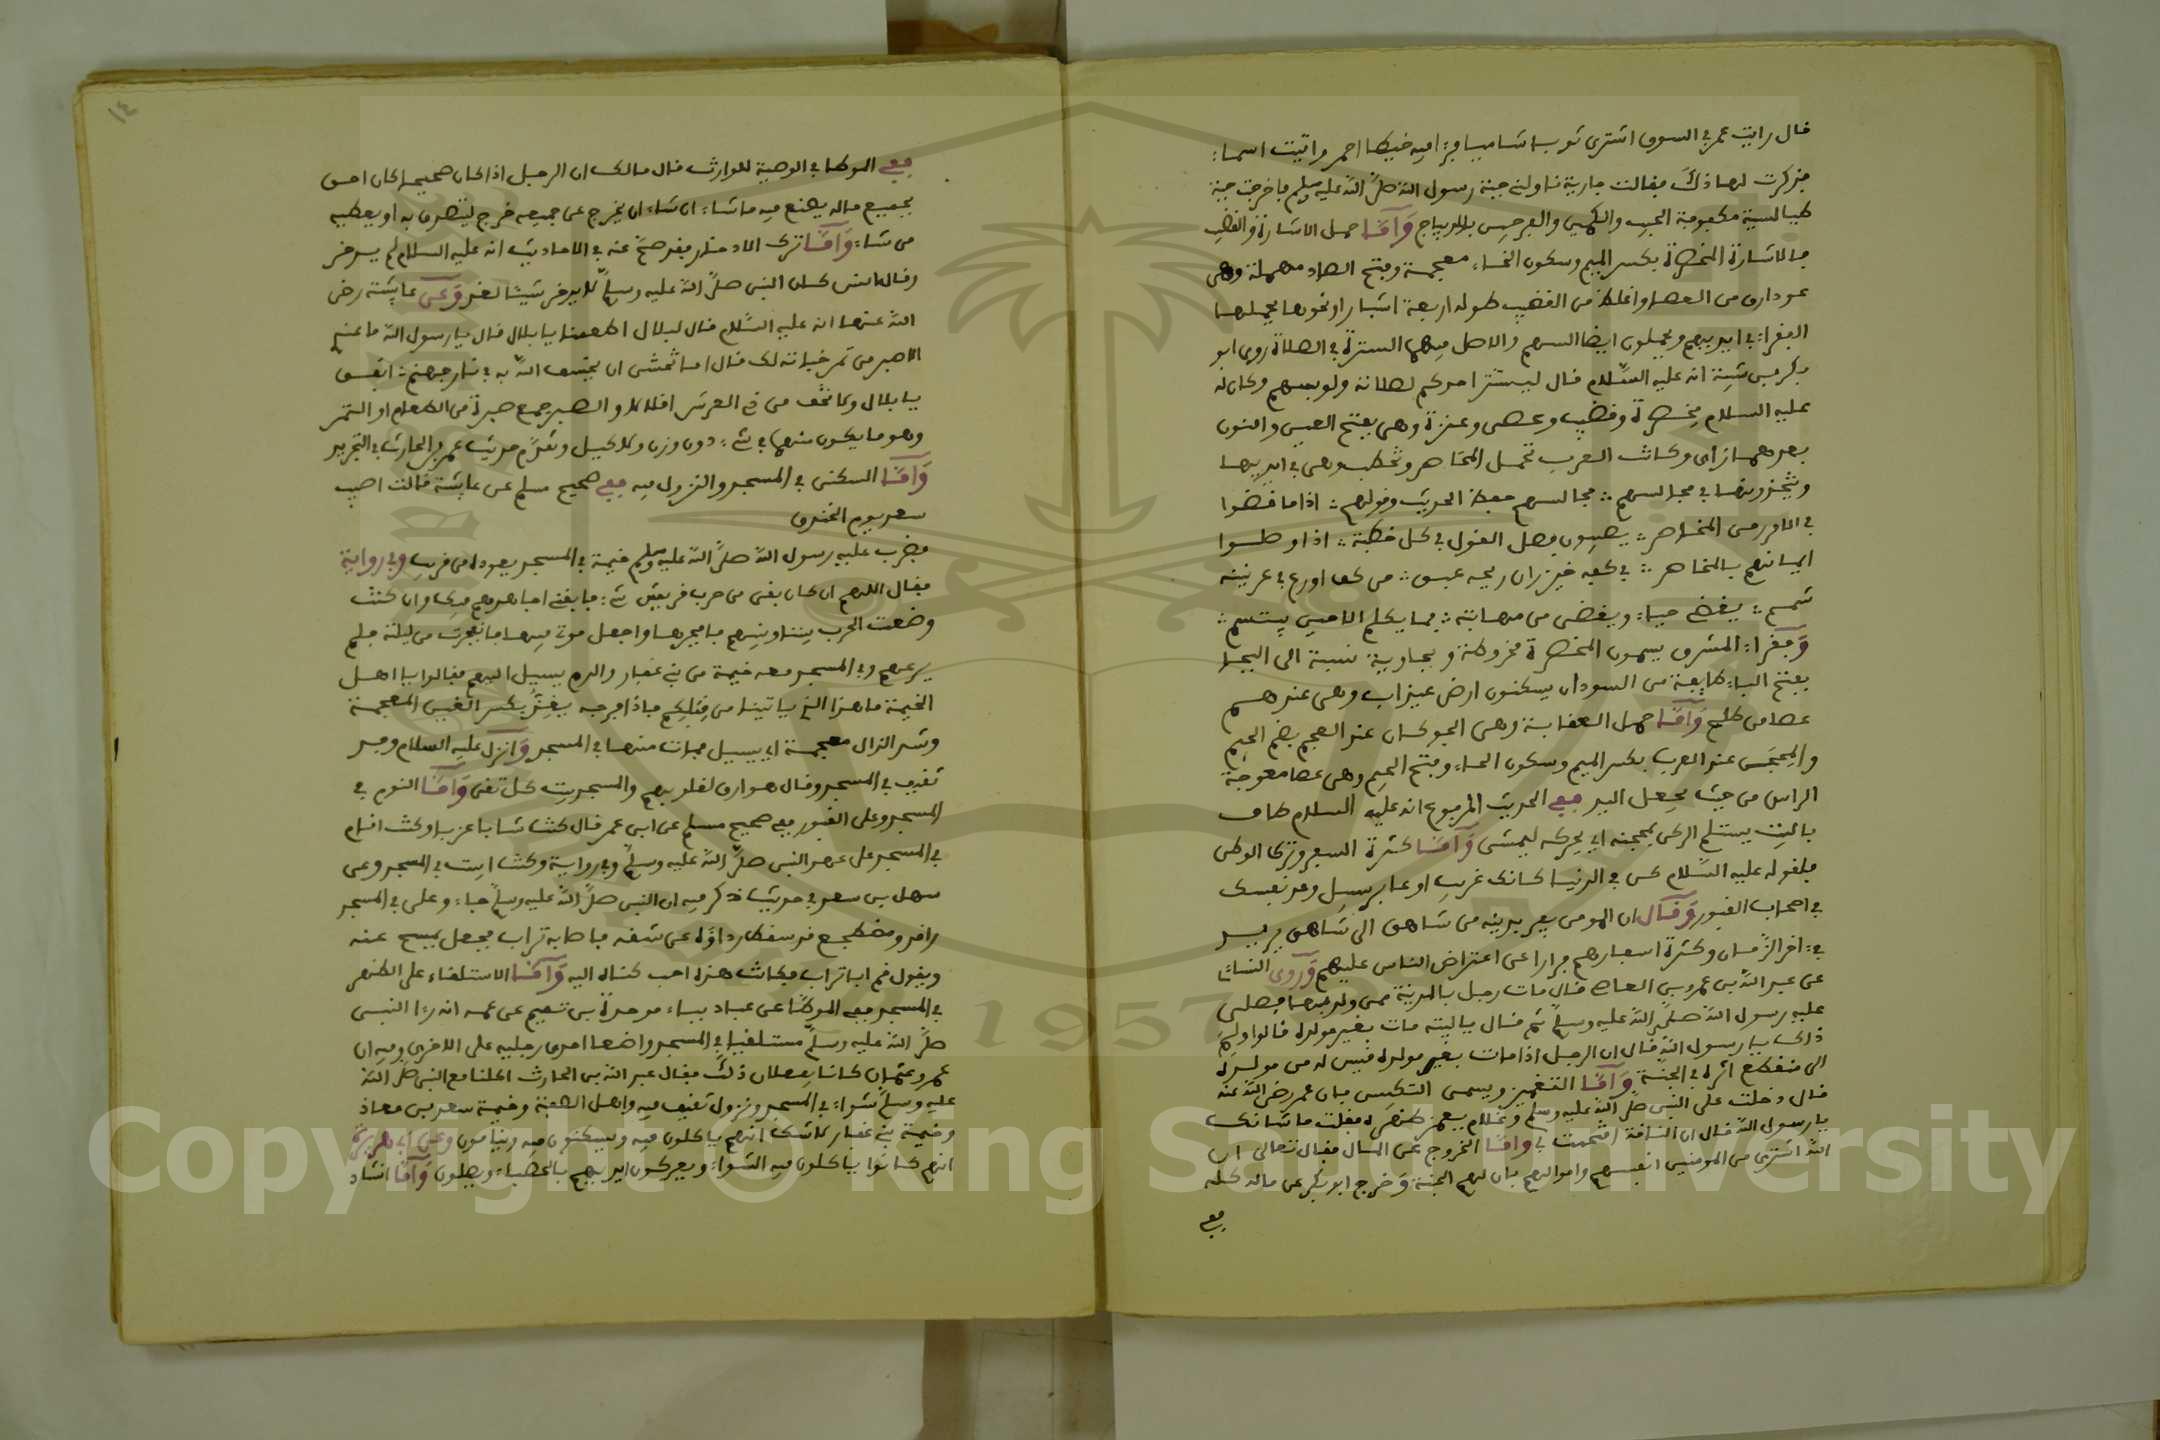 قال رايت عمر في السوق اشترى ثوبا شاميا فرا فيه خيطا احمر واتيت اسما
فذكرت لها ذلك فقالت جارية ناولني جبة رسول الله صلى الله عليه وسلم فاخرجت جبة
طيالسية مكفوفة الجيب والكمين والفرجين بالديباج وَأَمَّا حمل الاشارة والقضيب
فالاشارة المخصرة بكسر الميم وسكون الخاء معجمة وفتح الصاد مهملة وهي
عود ارق من العصا واغلظ من القضيب طوله اربعة اشبار او نحوها يحملها
الفقراء في ايديهم ويحملون ايضا السهم والاصل فيهما السترة في الصلاة روى ابو
بكر بن شيبة انه عليه السلام قال ليستتر احدكم لصلاته ولو بسهم وكان له
عليه السلام مخصرة وقضيب وعصى وعنزة وهي بفتح العين والنون
بعدهما زاى وكانت العرب تحمل المخاصر وتخطب وهي في ايديها
في الامر من المخاصر يصيبون فصل القول في كل خطبة اذا وصلوا
ايمانهم بالمخاصر في كفه خيزران ريحه عبق من كف اروع في عرنينه
شمم يغضى حياء ويغضى من مهابته فما يكلم الا حين يبتسم
وَفقراء المشرق يسمون المخصرة مخروطة وبجاوية نسبة الى البجا
بفتح الباء طايفة من السودان يسكنون ارض عيزاب وهي عندهم
عصا من طلح وَأَمَّا حمل العقافة وهي الجوكان عند العجم بضم الجيم
والمحجن عند العرب بكسر الميم وسكون الحاء وفتح الجيم وهي عصا معوجة
الراس من حيث تجعل اليد ففي الحديث المرفوع انه عليه السلام طاف
بالبيت يستلم الركن بمحجنه اي يحركه ليمشى وَأَمَّا كثرة السفر وترك الوطن
فلقوله عليه السلام كن في الدنيا كانك غريب او عابر سبيل وعد نفسك
في اصحاب القبور وَقَال ان المومن يفر بدينه من شاهق الى شاهق يريد
في اخر الزمان وكثرة اسفارهم فرارا عن اعتراض الناس عليهم وَرَوى النسائي
عن عبد الله بن عمرو بن العاص قال مات رجل بالمدينة ممن ولد بها فصلى
عليه رسول الله صلى الله عليه وسلم ثم قال ياليته مات بغير مولده قالوا ولم
ذاك يا رسول الله قال ان الرجل اذا مات بغير مولده قيس له من مولده
الى منقطع اثره في الجنة وَأَمَّا التغميز ويسمى التكبيس فان عمر رضي الله عنه
قال دخلت على النبي صلى الله عليه وسلم وغلام يغمز ظهره فقلت ما شانك
يا رسول الله قال ان الناقة اقتحمت بي وَأَمَّا الخروج عن المال فقال تعالى ان
الله اشترى من المومنين انفسهم واموالهم بان لهم الجنة وَخرج ابو بكر عن ماله كله
ففي
١٤
ففي الموطا في الوصية للوارث قال مالك ان الرجل اذا كان صحيحا كان احق
بجميع ماله يصنع فيه ما شاء ان شاء ان يخرج عن جميعه خرج ليتصدق به او يعطيه
من شاء وَأَمَّا ترك الادخار فقد صح عنه في الاحاديث انه عليه السلام لم يدخر
وقال انس كان النبي صلى الله عليه وسلم لا يدخر شيئا لغد وَعَن عايشة رضي
الله عنها انه عليه السلام قال لبلال اطعمنا يا بلال قال يا رسول الله ما عندي
الا صبر من تمر خباته لك قال اما تخشى ان يخسف الله به في نار جهنم انفق
يا بلال ولا تخف من ذي العرش اقلالا والصبر جمع صبرة من الطعام او التمر
وهو ما يكون منهما في شيء دون وزن ولا كيل وتقدم حديث عمر بن الحارث في التجريد
وَأَمَّا السكنى في المسجد والنزول فيه ففي صحيح مسلم عن عايشة قالت اصيب
سعد يوم الخندق
فضرب عليه رسول الله صلى الله عليه وسلم خيمة في المسجد يعوده من قريب وفي رواية
فقال اللهم ان كان بقى من حرب قريش شيء فابقني اجاهدهم فيك وان كنت
وضعت الحرب بيننا وبينهم فافجرها واجعل موتي فيها فانفجرت من ليلته فلم
يرعهم وفي المسجد معه خيمة من بني غفار والدم يسيل اليهم فقالوا يا اهل
الخيمة ما هذا الذي ياتينا من قبلكم فاذا جرحه يغذ بكسر الغين المعجمة
وشد الذال معجمة اي يسيل فمات منها في المسجد وَانزل عليه السلام وفد
ثقيف في المسجد وقال هو ارق لقلوبهم والمسجد بيت كل تقى وَأَمَّا النوم في
المسجد وعلى القبور ففي صحيح مسلم عن ابن عمر قال كنت شابا عزبا وكنت انام
في المسجد على عهد النبي صلى الله عليه وسلم وفي رواية وكنت ابيت في المسجد وعن
سهل بن سعد في حديث ذكر فيه ان النبي صلى الله عليه وسلم جاء وعلى في المسجد
راقد ومضطجع قد سقط رداؤه عن شقه فاصابه تراب فجعل يمسح عنه
ويقول قم ابا تراب فكانت هذه احب كناه اليه وَأَمَّا الاستلقاء على الظهر
في المسجد ففي الموطا عن عباد بباء موحدة بن تميم عن عمه انه رءا النبي
صلى الله عليه وسلم مستلقيا في المسجد واضعا احدى رجليه على الاخرى وفيه ان
عمر وعثمان كانا يفعلان ذلك فقال عبد الله بن الحارث اكلنا مع النبي صلى الله
عليه وسلم شواء في المسجد ونزول ثقيف فيه واهل الصفة وخيمة سعد بن معاذ
وخيمة بني غفار لا شك انهم ياكلون فيه ويسكنون فيه وينامون وعن ابي هريرة
انهم كانوا ياكلون فيه الشواء ويعركون ايديهم بالحصباء ويصلون وَأَمَّا انشاد
Copyright © King Saud University
1957